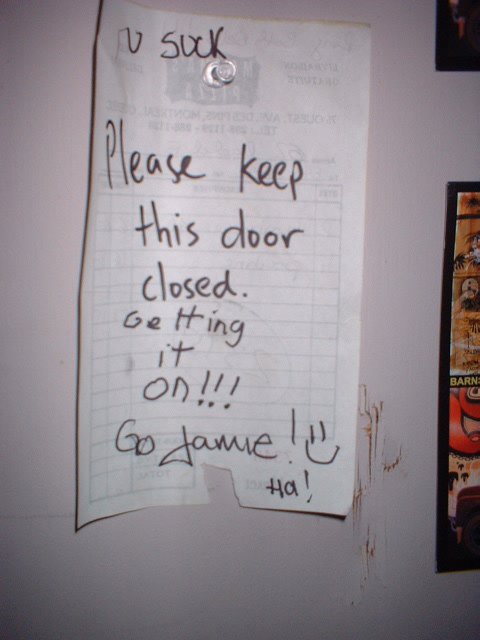 U SUCK
Please keep
this door
closed.
Getting
it
on!!!
Go Jamie!
Ha!
BARNS